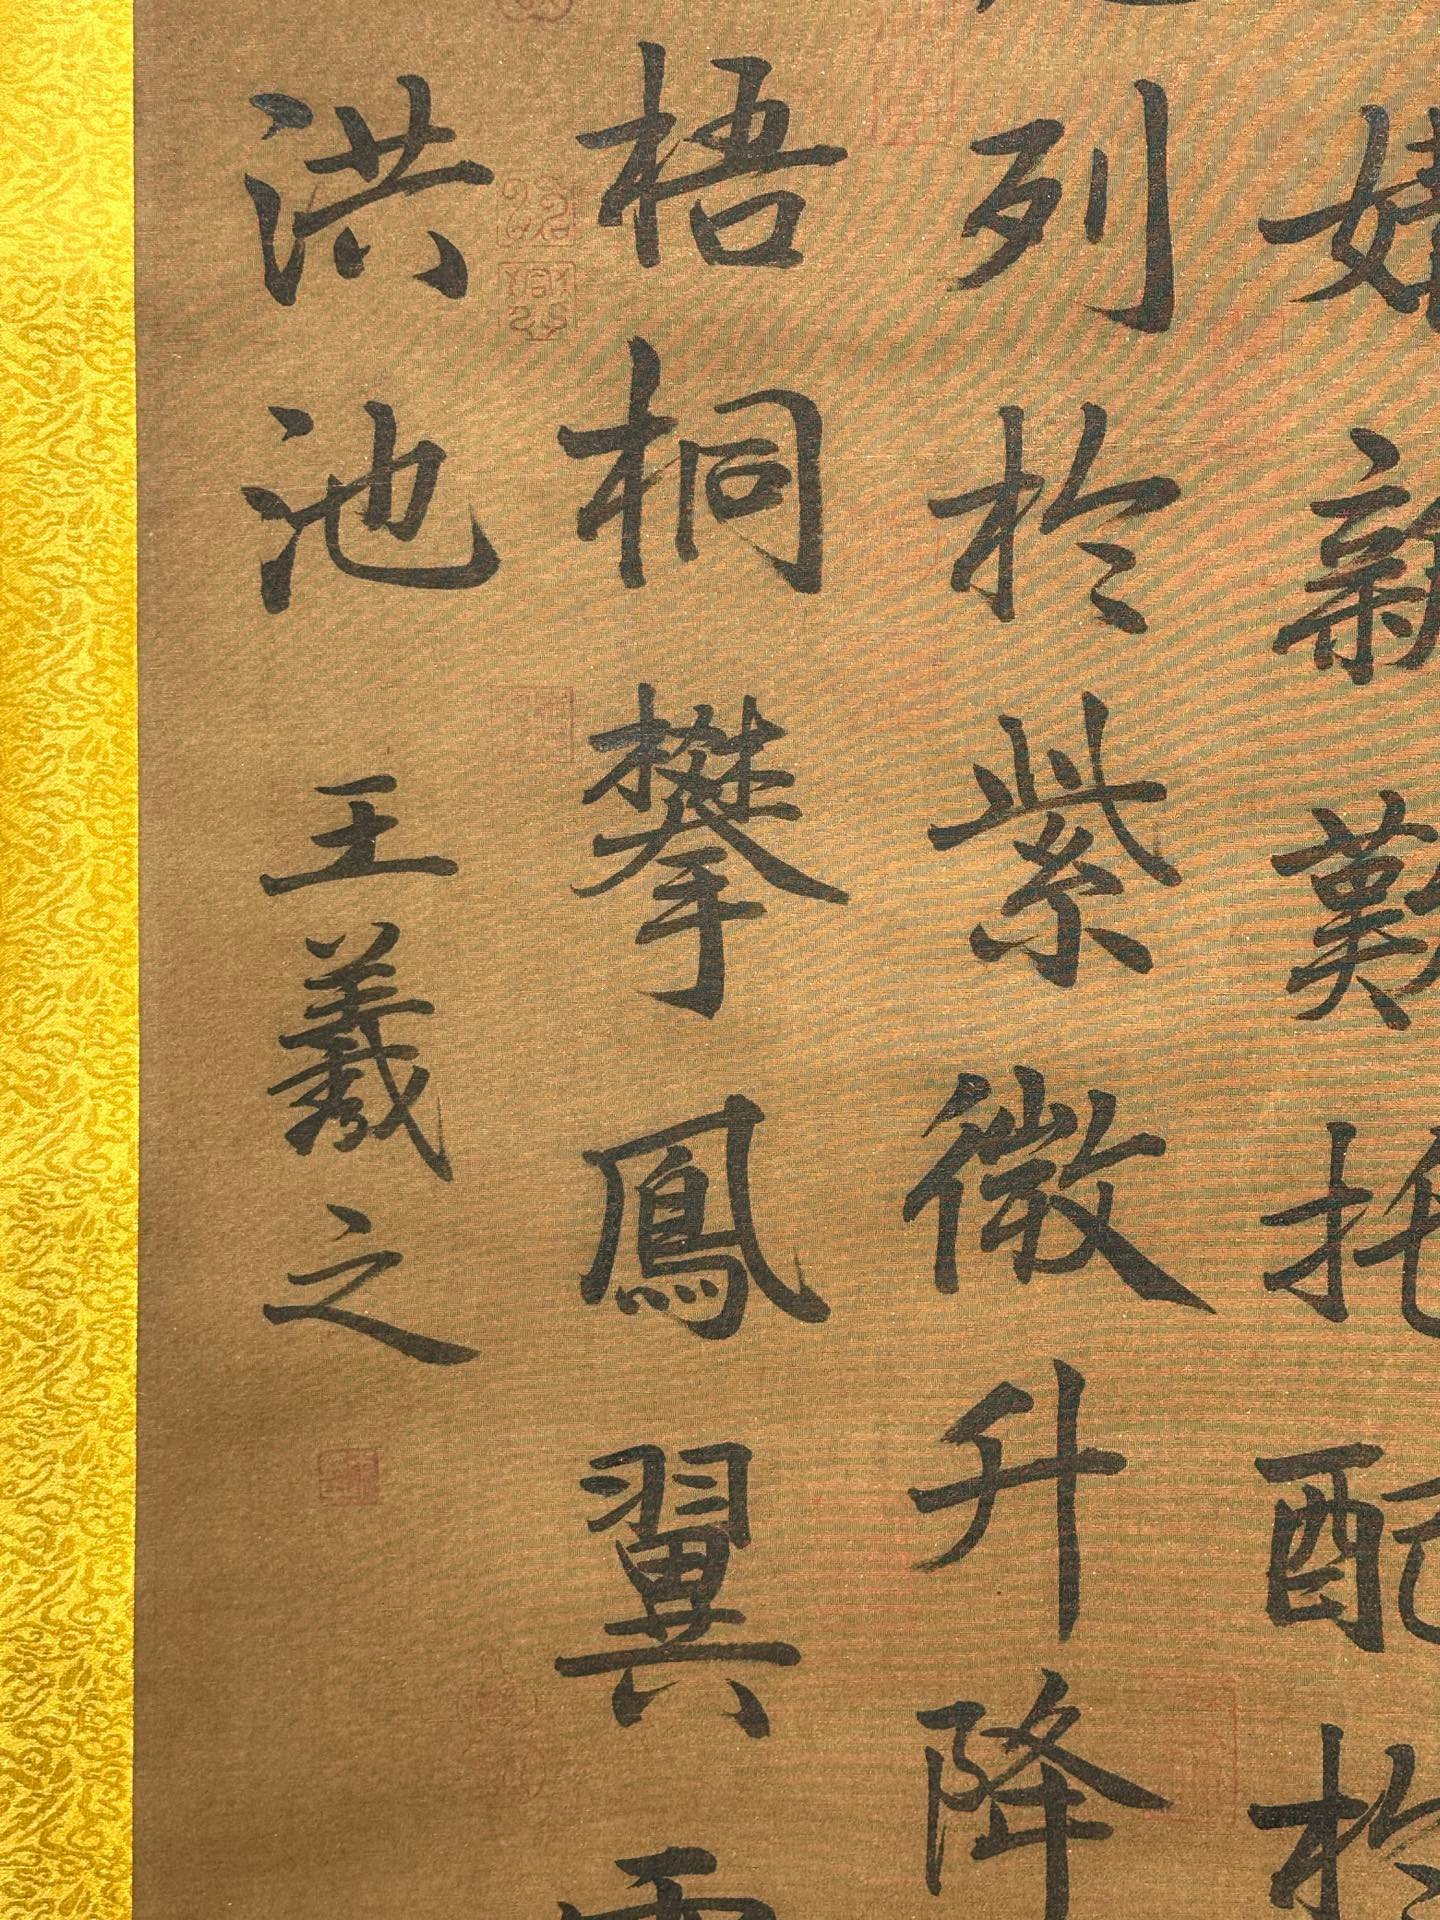 新艱托配於
列於紫微升降
梧桐攀鳳翼
洪池
王羲之